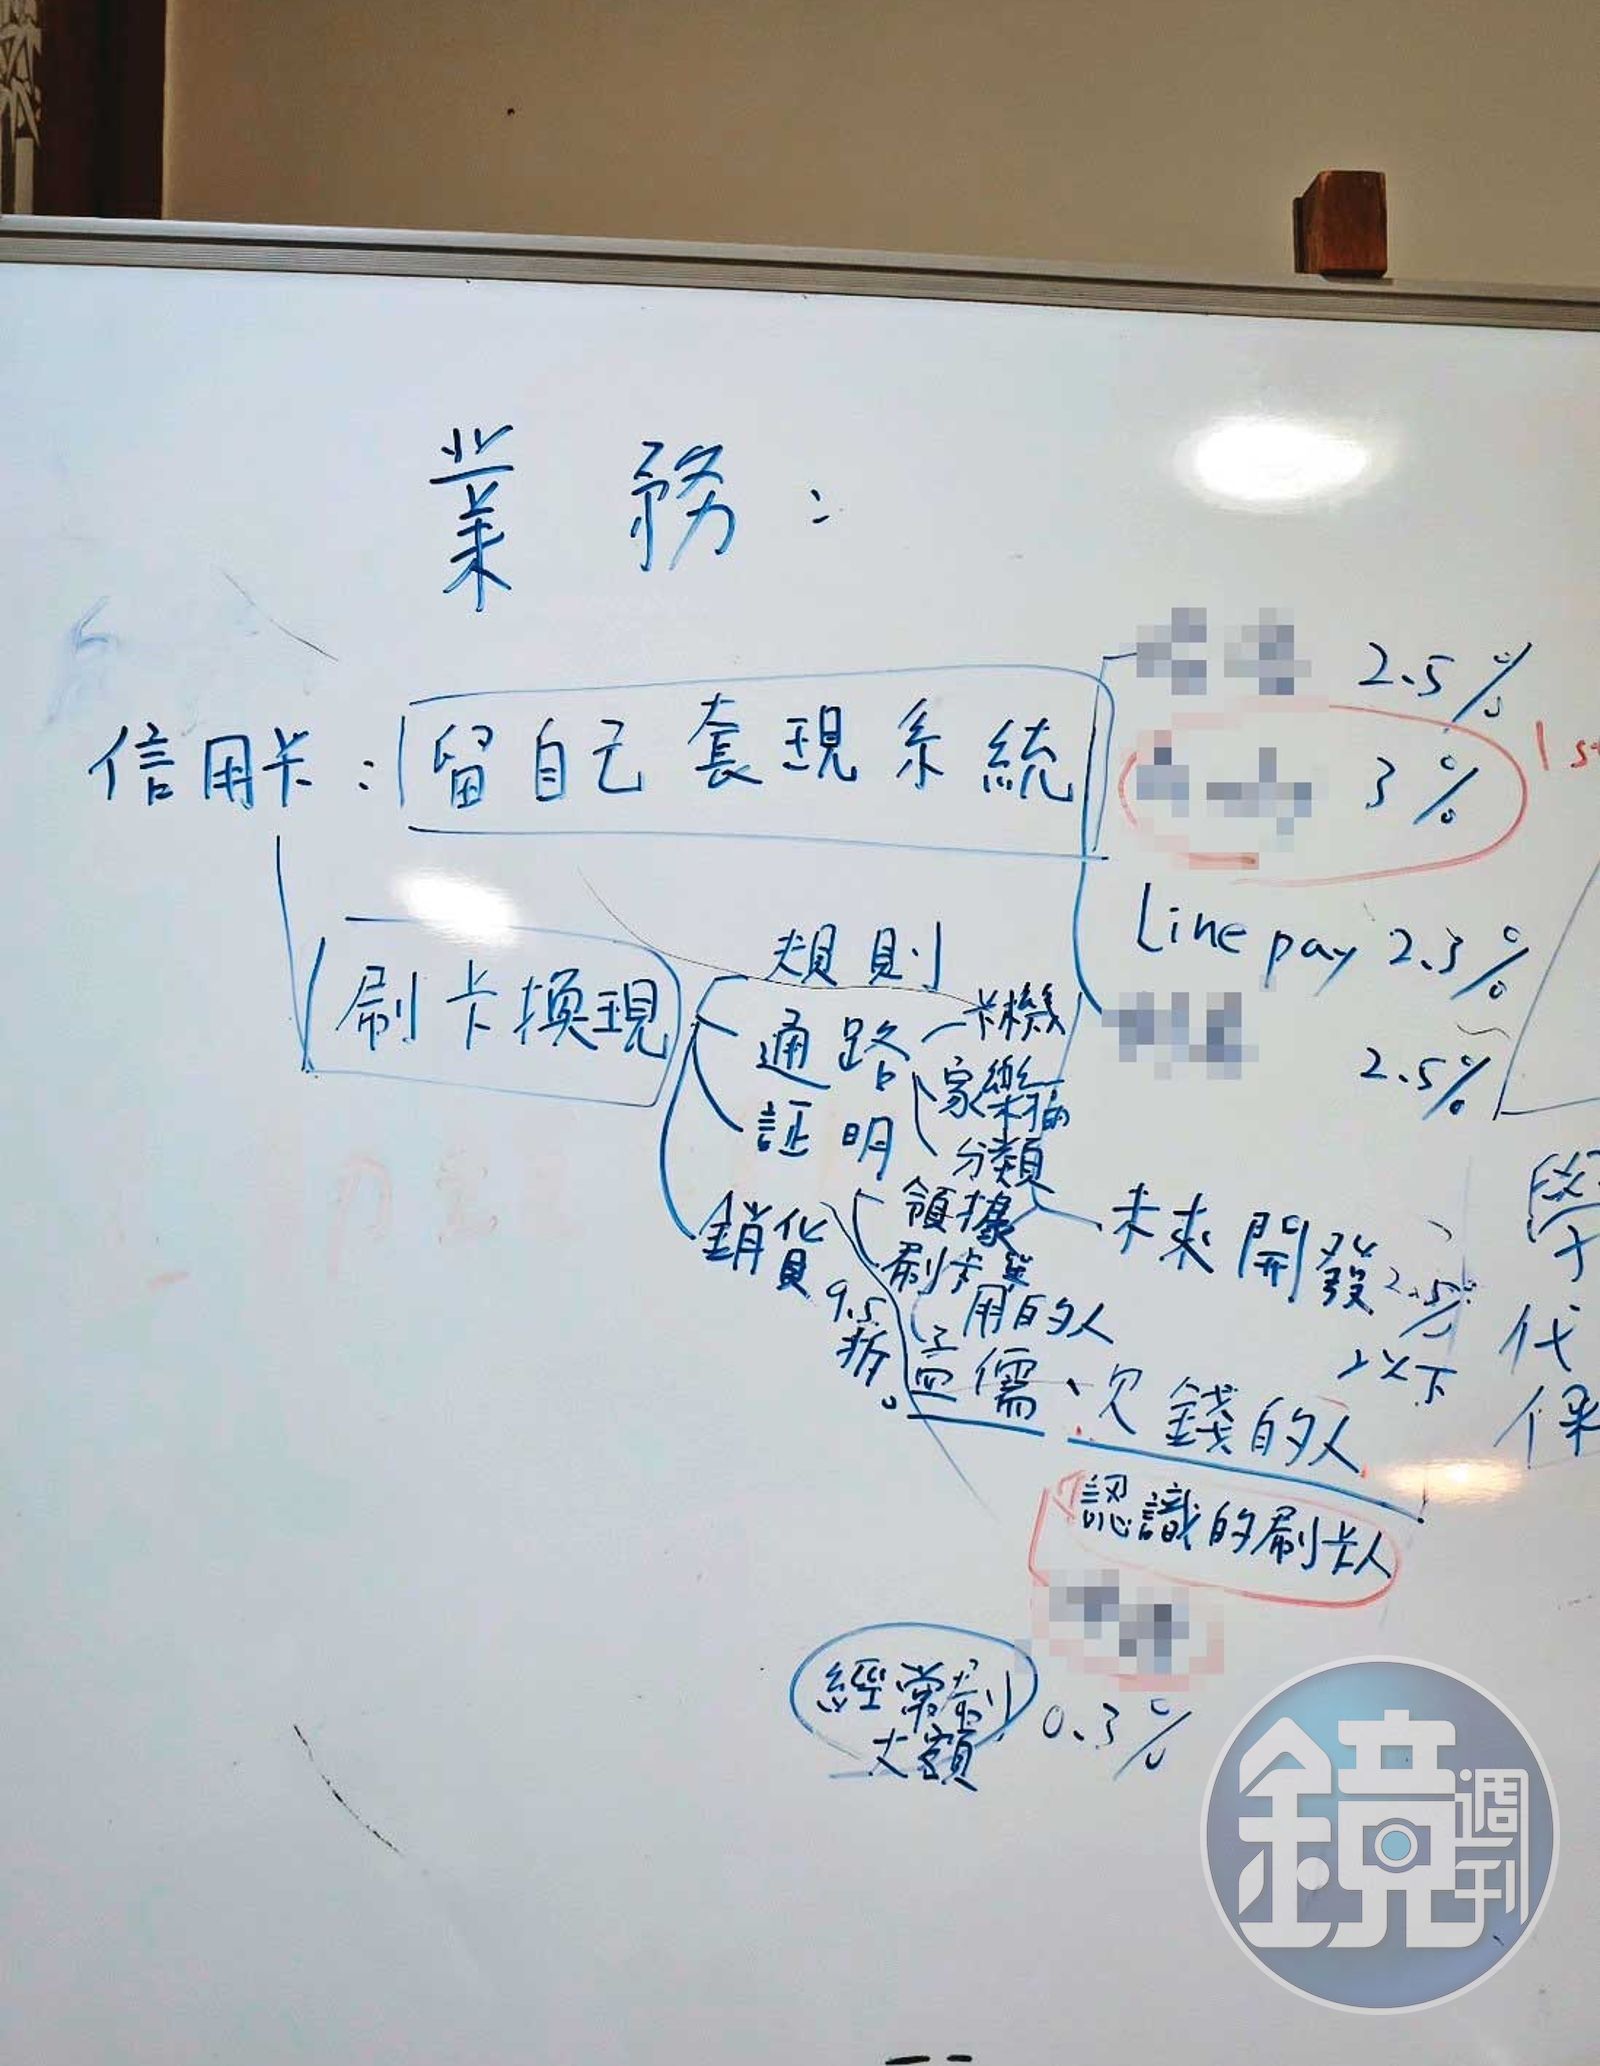 業務:
2.5%
信用卡:留自己套現系統
3%
1s
Line pay 2.3%
2.5%
刷卡換現
規則
通路
卡機
家樂福
証明
分類
銷貨
9.5折。
領據
刷卡
用的人
未來開發
2.5%
以下
孟儒、欠錢的人
認識的刷卡人
經常刷
大額
0.3%
學
代
保
鏡週刊